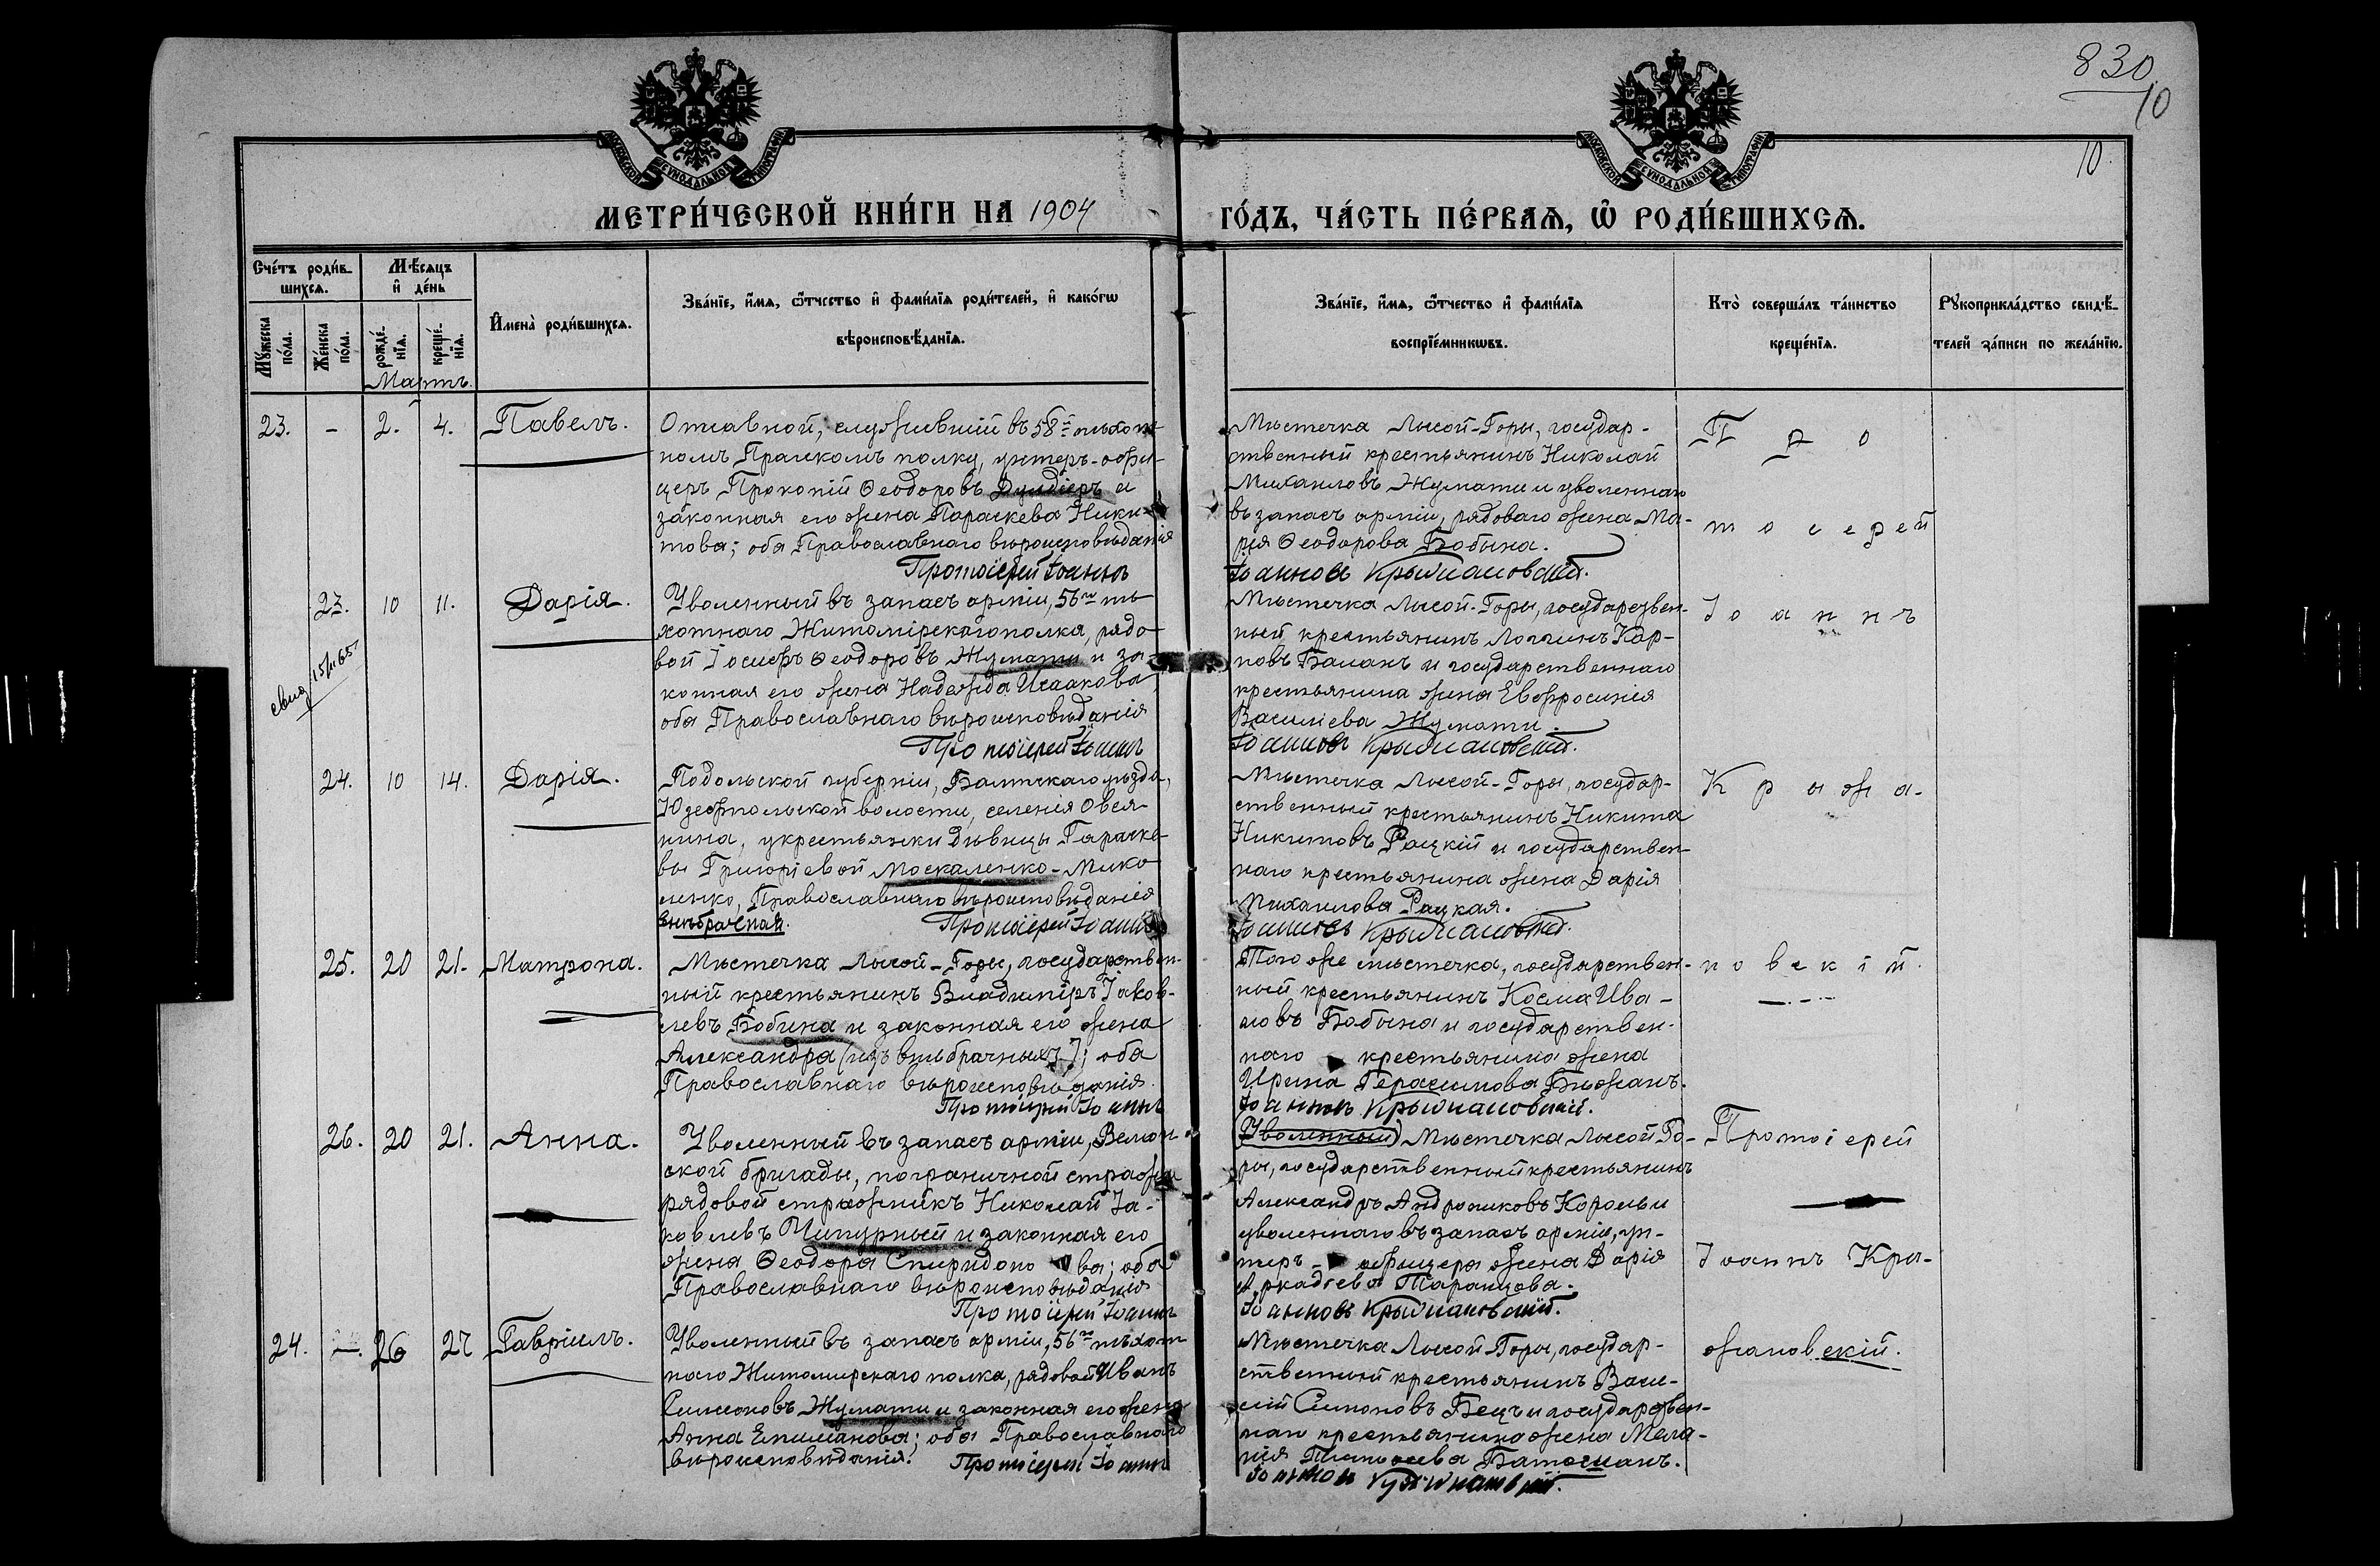 830
10
10.
МОСКОВСКОЙ СѴНОДАЛЬНОЙ ТИПОГРАФІИ
МОСКОВСКОЙ СѴНОДАЛЬНОЙ ТИПОГРАФІИ
МЕТРИ́ЧЕСКОЙ КНИ́ГИ НА 1904
ГО́ДЪ, ЧА́СТЬ ПЕ́РВАѦ, Ѽ РОДИ́ВШИХСѦ.
Сче́тъ роди́в-
шихсѧ.
Мѣ́сѧцъ
и҆ де́нь
Мꙋ́жеска
по́ла.
Же́нска
по́ла.
рожде́-
нїѧ.
креще́-
нїѧ.
И҆мена̀ роди́вшихсѧ.
Зва́нїе, и҆́мѧ, ѻ҆́тчество и҆ фами́лїѧ роди́телей, и҆ како́гѡ
вѣроисповѣ́данїѧ.
Зва́нїе, и҆́мѧ, ѻ҆́тчество и҆ фами́лїѧ
воспрїе́мникѡвъ.
Кто̀ соверша́лъ та́инство
креще́нїѧ.
Рꙋкоприкла́дство свидѣ́-
телей за́писи по жела́нїю.
Мартъ.
23. - 2. 4. Павелъ.
Отставной, служившій въ 58й пѣхот-
номъ Пражскомъ полку, унтеръ-офи-
церъ Прокопій Ѳеодоровъ и
законная его жена Параскева Ники-
това; оба Православнаго вѣроисповѣданія
Протоіерей Іоаннъ
Мѣстечка Лысой-Горы, государ-
ственный крестьянинъ Николай
Михаиловъ Жумати и уволеннаго
въ запасъ арміи, рядоваго жена Ма-
рія Ѳеодорова Бобына.
Іоанновъ Крыжановскій.
П р о
т о і е р е й
23. 10 11. Дарія.
15/II 65
Уволенный въ запасъ арміи, 56го пѣ-
хотнаго Житомірскаго полка, рядо-
вой Іосифъ Ѳеодоровъ Жумати и за-
конная его жена Надежда Исаакова
оба Православнаго вѣроисповѣданія
Протоіерей Іоаннъ
Мѣстечка Лысой-Горы, государствен-
ный крестьянинъ Логгинъ Кар-
повъ Баланъ и государственнаго
крестьянина жена Евфросинія
Василіева Жумати.
Іоанновъ Крыжановскій.
І о а н н ъ
24. 10 14. Дарія.
Подольской губерніи, Балтскаго уѣзда,
Юзефпольской волости, селенія Овся-
нина, у крестьянки дѣвицы Параске-
вы Григоріевой Москаленко-Мико
ленко, Православнаго вѣроисповѣданія
внѣбрачная. Протоіерей Іоаннъ
Мѣстечка Лысой-Горы, государ-
ственный крестьянинъ Никита
Никитовъ Рацкій и государствен-
наго крестьянина жена Дарія
Михаилова Рацкая.
Іоанновъ Крыжановскій.
К р ы ж а-
25. 20 21. Матрона.
Мѣстечка Лысой-Горы, государствен-
ный крестьянинъ Владиміръ Іаков-
левъ Бобина и законная его жена
Александра (изъ внѣбрачныхъ); оба
Православнаго вѣроисповѣданія.
Протоіерей Іоаннъ
Того же мѣстечка, государствен-
ный крестьянинъ Косма Ива-
новъ Бобына и государствен-
наго крестьянина жена
Ирина Герасимова Бѣжанъ.
Іоанновъ Крыжановскій.
н о в с к і й.
26. 20 21. Анна.
Уволенный въ запасъ арміи,
ской бригады, пограничной стражи
рядовой стражникъ Николай Іа-
ковлевъ Чипурный и законная его
жена Ѳеодора Спиридоно ва; оба
Православнаго вѣроисповѣданія
Протоіерей Іоаннъ
(Уволенный) Мѣстечка Лысой Го-
ры, государственный крестьянинъ
Александръ Андрониковъ Король и
уволеннаго въ запасъ арміи, ун-
теръ- офицера жена Дарія
Аркадіева Таранцова.
Іоанновъ Крыжановскій.
Протоіерей
Іоаннъ Кры-
24. -. 26 27 Гавріилъ.
Уволенный въ запасъ арміи, 56го пѣхот-
наго Житомирскаго полка, рядовой Иванъ
Симеоновъ Жумати и законная его жена
Анна Епифанова; оба Православнаго
вѣроисповѣданія. Протоіерей Іоаннъ
Мѣстечка Лысой-Горы, государ-
ственный крестьянинъ Васи-
лій Симоновъ Бецъ и государствен-
наго крестьянина жена Мела-
нія Батосманъ.
Іоанновъ Крыжановскій.
жановскій.